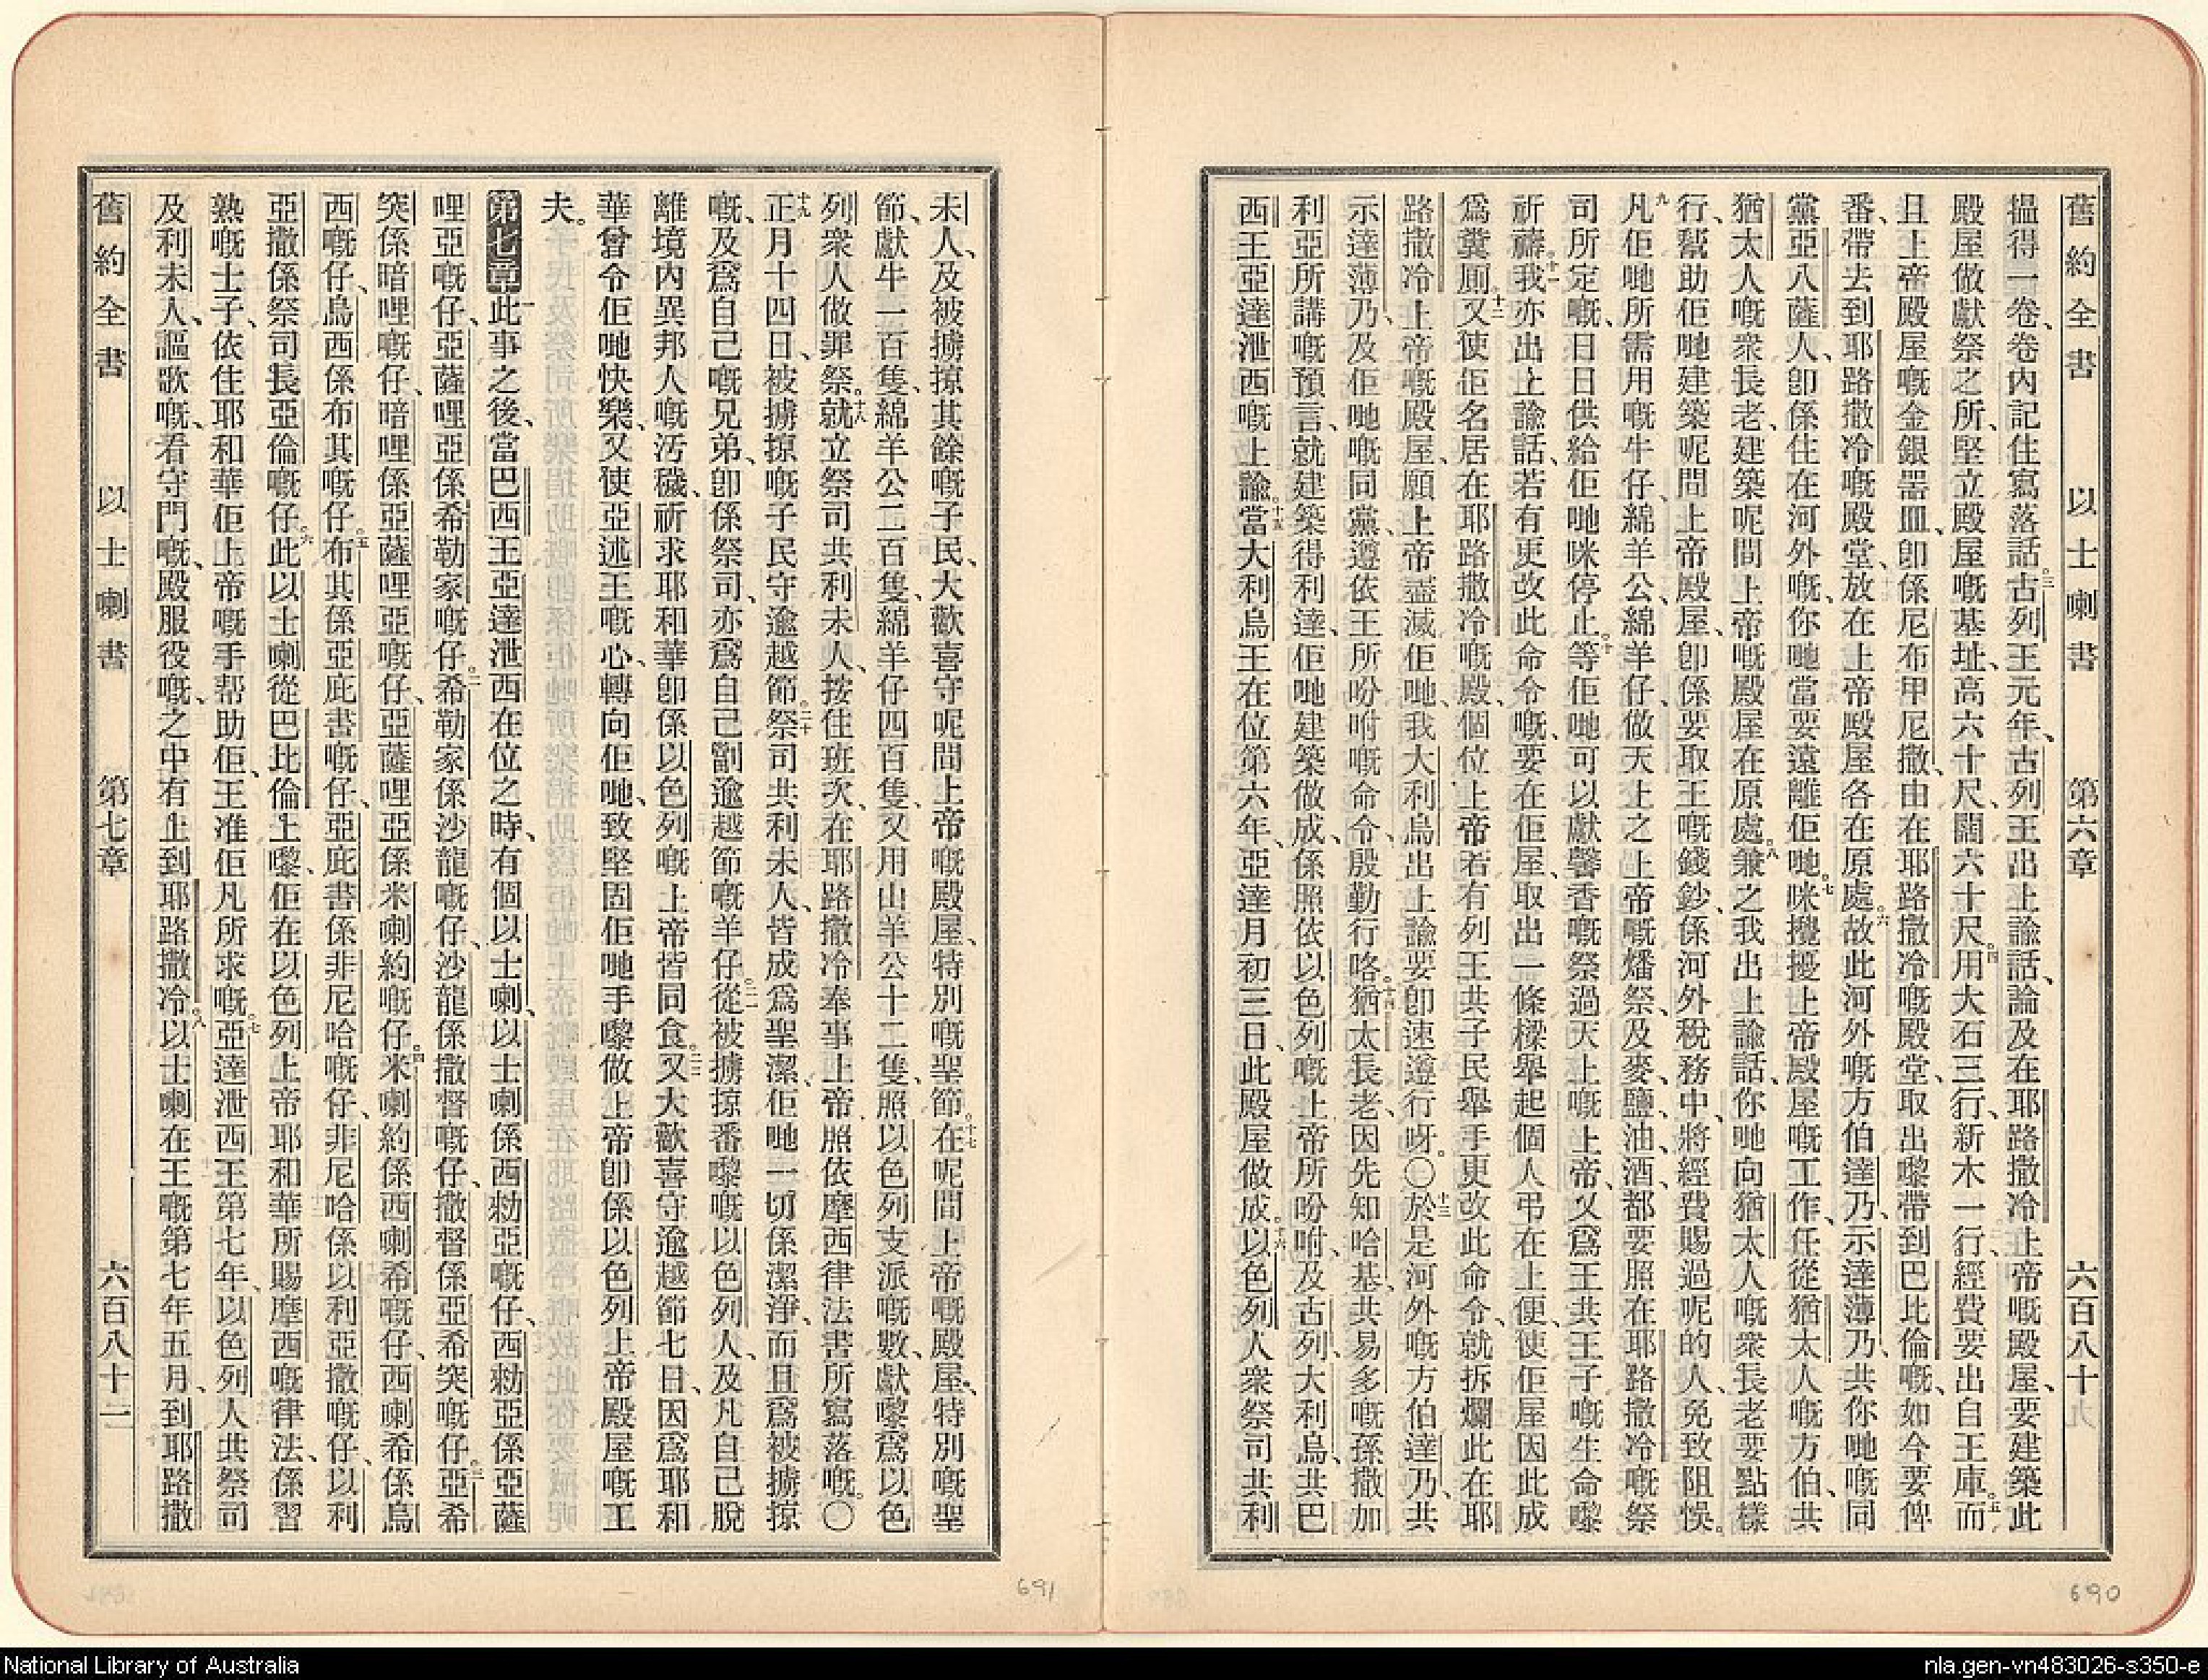 舊約全書 以士喇書 第六章 六百八十
揾得一卷、卷內記住寫落話。三古列王元年、古列王出上諭話、論及在耶路撒冷上帝嘅殿屋、要建築此
殿屋做獻祭之所、堅立殿屋嘅基址、高六十尺、闊六十尺。四用大石三行、新木一行、經費要出自王庫。五而
且上帝殿屋嘅金銀器皿、卽係尼布甲尼撒、由在耶路撒冷嘅殿堂、取出嚟帶到巴比倫嘅、如今要俾
番、帶去到耶路撒冷嘅殿堂、放在上帝殿屋各在原處。六故此河外嘅方伯達乃、示達薄乃、共你哋嘅同
黨亞八薩人、卽係住在河外嘅、你哋當要遠離佢哋。七咪攪擾上帝殿屋嘅工作、任從猶太人嘅方伯、共
猶太人嘅衆長老、建築呢間上帝嘅殿屋在原處。八兼之我出上諭話、你哋向猶太人嘅衆長老要點樣
行、幫助佢哋建築呢間上帝殿屋、卽係要取王嘅錢鈔、係河外稅務中、將經費賜過呢的人、免致阻悞。
九凡佢哋所需用嘅牛仔、綿羊公、綿羊仔、做天上之上帝嘅燔祭、及麥、鹽、油、酒、都要照在耶路撒冷嘅祭
司所定嘅、日日供給佢哋咪停止。十等佢哋可以獻馨香嘅祭過天上嘅上帝、又爲王共王子嘅生命嚟
祈禱。十一我亦出上諭話、若有更改此命令嘅、要在佢屋、取出一條樑舉起個人弔在上便、使佢屋因此成
爲糞厠。十二又使佢名居在耶路撒冷嘅殿、個位上帝、若有列王共子民舉手更改此命令、就拆爛此在耶
路撒冷上帝嘅殿屋、願上帝盡滅佢哋、我大利烏出上諭、要卽速遵行呀。○十三於是河外嘅方伯達乃、共
示達薄乃、及佢哋嘅同黨、遵依王所吩咐嘅命令、殷勤行咯。十四猶太長老、因先知哈基、共易多嘅孫撒加
利亞所講嘅預言、就建築得利達、佢哋建築做成、係照依以色列嘅上帝所吩咐、及古列、大利烏、共巴
西王亞達泄西嘅上諭。十五當大利烏王在位第六年、亞達月初三日、此殿屋做成。十六以色列人衆祭司共利
未人、及被擄掠其餘嘅子民、大歡喜守呢間上帝嘅殿屋、特別嘅聖節。十七在呢間上帝嘅殿屋、特別嘅聖
節、獻牛一百隻、綿羊公二百隻、綿羊仔四百隻、又用山羊公十二隻、照以色列支派嘅數、獻嚟爲以色
列衆人做罪祭。十八就立祭司共利未人、按住班次、在耶路撒冷奉事上帝、照依摩西律法書所寫落嘅。○
十九正月十四日、被擄掠嘅子民守逾越節。二十祭司共利未人、皆成爲聖潔、佢哋一切係潔淨、而且爲被擄掠
嘅、及爲自己嘅兄弟、卽係祭司、亦爲自己劏逾越節嘅羊仔。二一從被擄掠番嚟嘅以色列人、及凡自己脫
離境內異邦人嘅汚穢、祈求耶和華卽係以色列嘅上帝皆同食。二二又大歡喜守逾越節七日、因爲耶和
華曾令佢哋快樂、又使亞述王嘅心、轉向佢哋、致堅固佢哋手嚟做上帝卽係以色列上帝殿屋嘅工
夫。
第七章 一此事之後、當巴西王亞達泄西在位之時、有個以士喇、以士喇係西勑亞嘅仔、西勑亞係亞薩
哩亞嘅仔、亞薩哩亞係希勒家嘅仔。二希勒家係沙龍嘅仔、沙龍係撒督嘅仔、撒督係亞希突嘅仔。三亞希
突係暗哩嘅仔、暗哩係亞薩哩亞嘅仔、亞薩哩亞係米喇約嘅仔。四米喇約係西喇希嘅仔、西喇希係烏
西嘅仔、烏西係布其嘅仔。五布其係亞庇書嘅仔、亞庇書係非尼哈嘅仔、非尼哈係以利亞撒嘅仔、以利
亞撒係祭司長亞倫嘅仔。六此以士喇從巴比倫上嚟、佢在以色列上帝耶和華所賜摩西嘅律法、係習
熟嘅士子、依住耶和華佢上帝嘅手帮助佢、王准佢凡所求嘅。七亞達泄西王第七年、以色列人共祭司
及利未人、謳歌嘅、看守門嘅、殿服役嘅、之中有上到耶路撒冷。八以士喇在王嘅第七年五月、到耶路撒
舊約全書 以士喇書 第七章 六百八十一
690
691
National Library of Australia
nla.gen-vn483026-s350-e